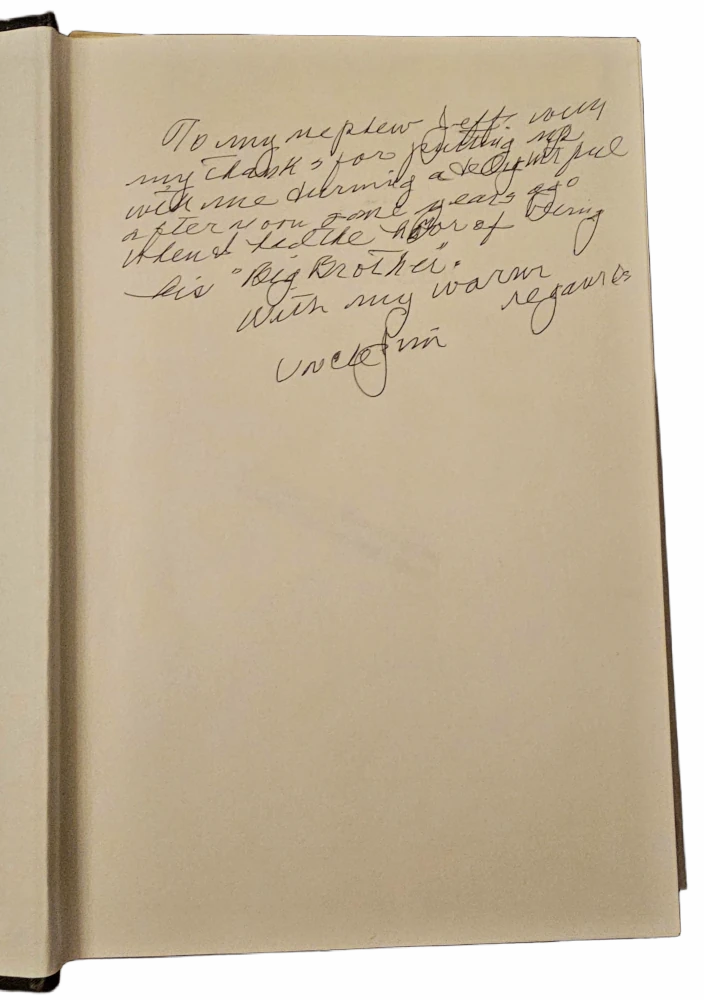 To my nephew Jeff, with
my thanks for putting up
with me during a delightful
afternoon some years ago
when I had the honor of being
his "Big Brother".
With my warm regards
Uncle Jim